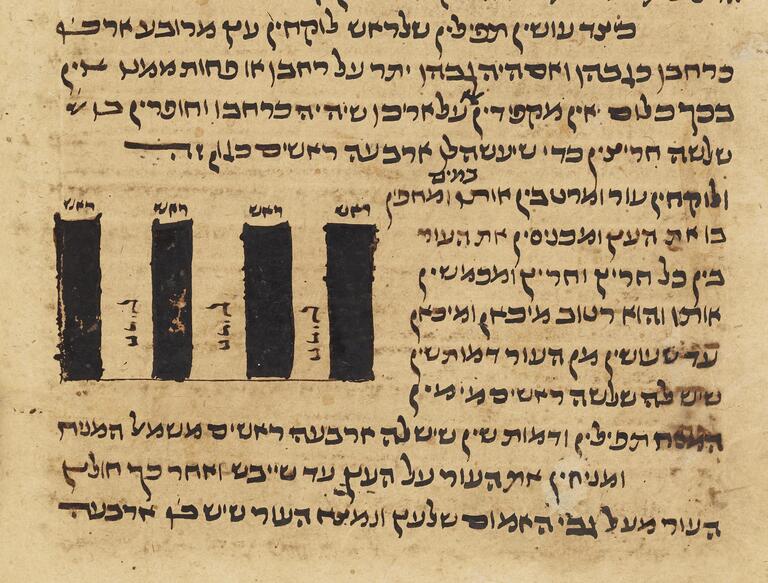 כיצד עושין תפילין שלראש לוקחין עץ מרובע ארכו
כרחבו כגבהו ואם היה גבהו יתר על רחבו או פחות ממנו אין
בכך כלום ואין מקפידין אלא על ארכו שיהיה כרחבו וחופרין בו
שלשה חריצין כדי שיעשה לו ארבעה ראשים כגון זה
ולוקחין עור ומרטבין אותו במים ומחפין
בו את העץ ומכניסין את העור
בין כל חריץ וחריץ ומכמשין
אותו והוא רטוב מיכאן ומיכאן
עד שעושין מן העור דמות שין
שיש לה שלשה ראשים מימין
ראש ראש ראש ראש
חריץ חריץ חריץ
המניח תפילין ודמות שין שיש לה ארבעה ראשים משמאל המניח
ומניחין את העור על העץ עד שייבש ואחר כך חולץ
העור מעל גבי האמום שלעץ ונמצא העור שיש בו ארבעה